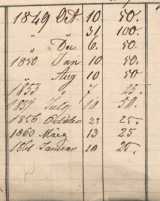 1849 Oct. 10. 50.
" 31 100.
" Dec 6. 50.
1850 Jan 10 50.
" Aug 10 50
1853 " " 25.
July 10 50.
1856 October 25.
1860 März 13 25
Januar 10 25.